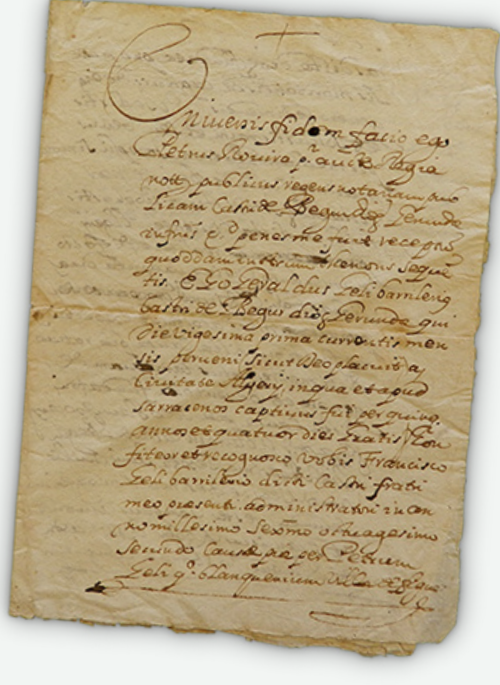 Univenis fidem facio ego
Petrus Rovira
nott publicus regens notariam pub
licam Castri de Begur Gerunda
infrus penes me fuit receptu
quoddam instrum tenoris seque
tis. Ego Geli barrilerig
Castri de Begur diog Gerunda qui
die vigesima prima currentis men
sis perveni sicut Deo placuit a
Civitate Algerÿ, in qua et apud
sarracenos captivus fui per quinq
annos et quatuor dies Gratis Con
fiteor et recognosco vobis Francisco
Geli barrilerio dicti Castri fratri
meo presenti administratori in an
no millesimo sexmo octuagesimo
secundo Causæ piæ per Petrum
Geli qo blanquerium villæ de